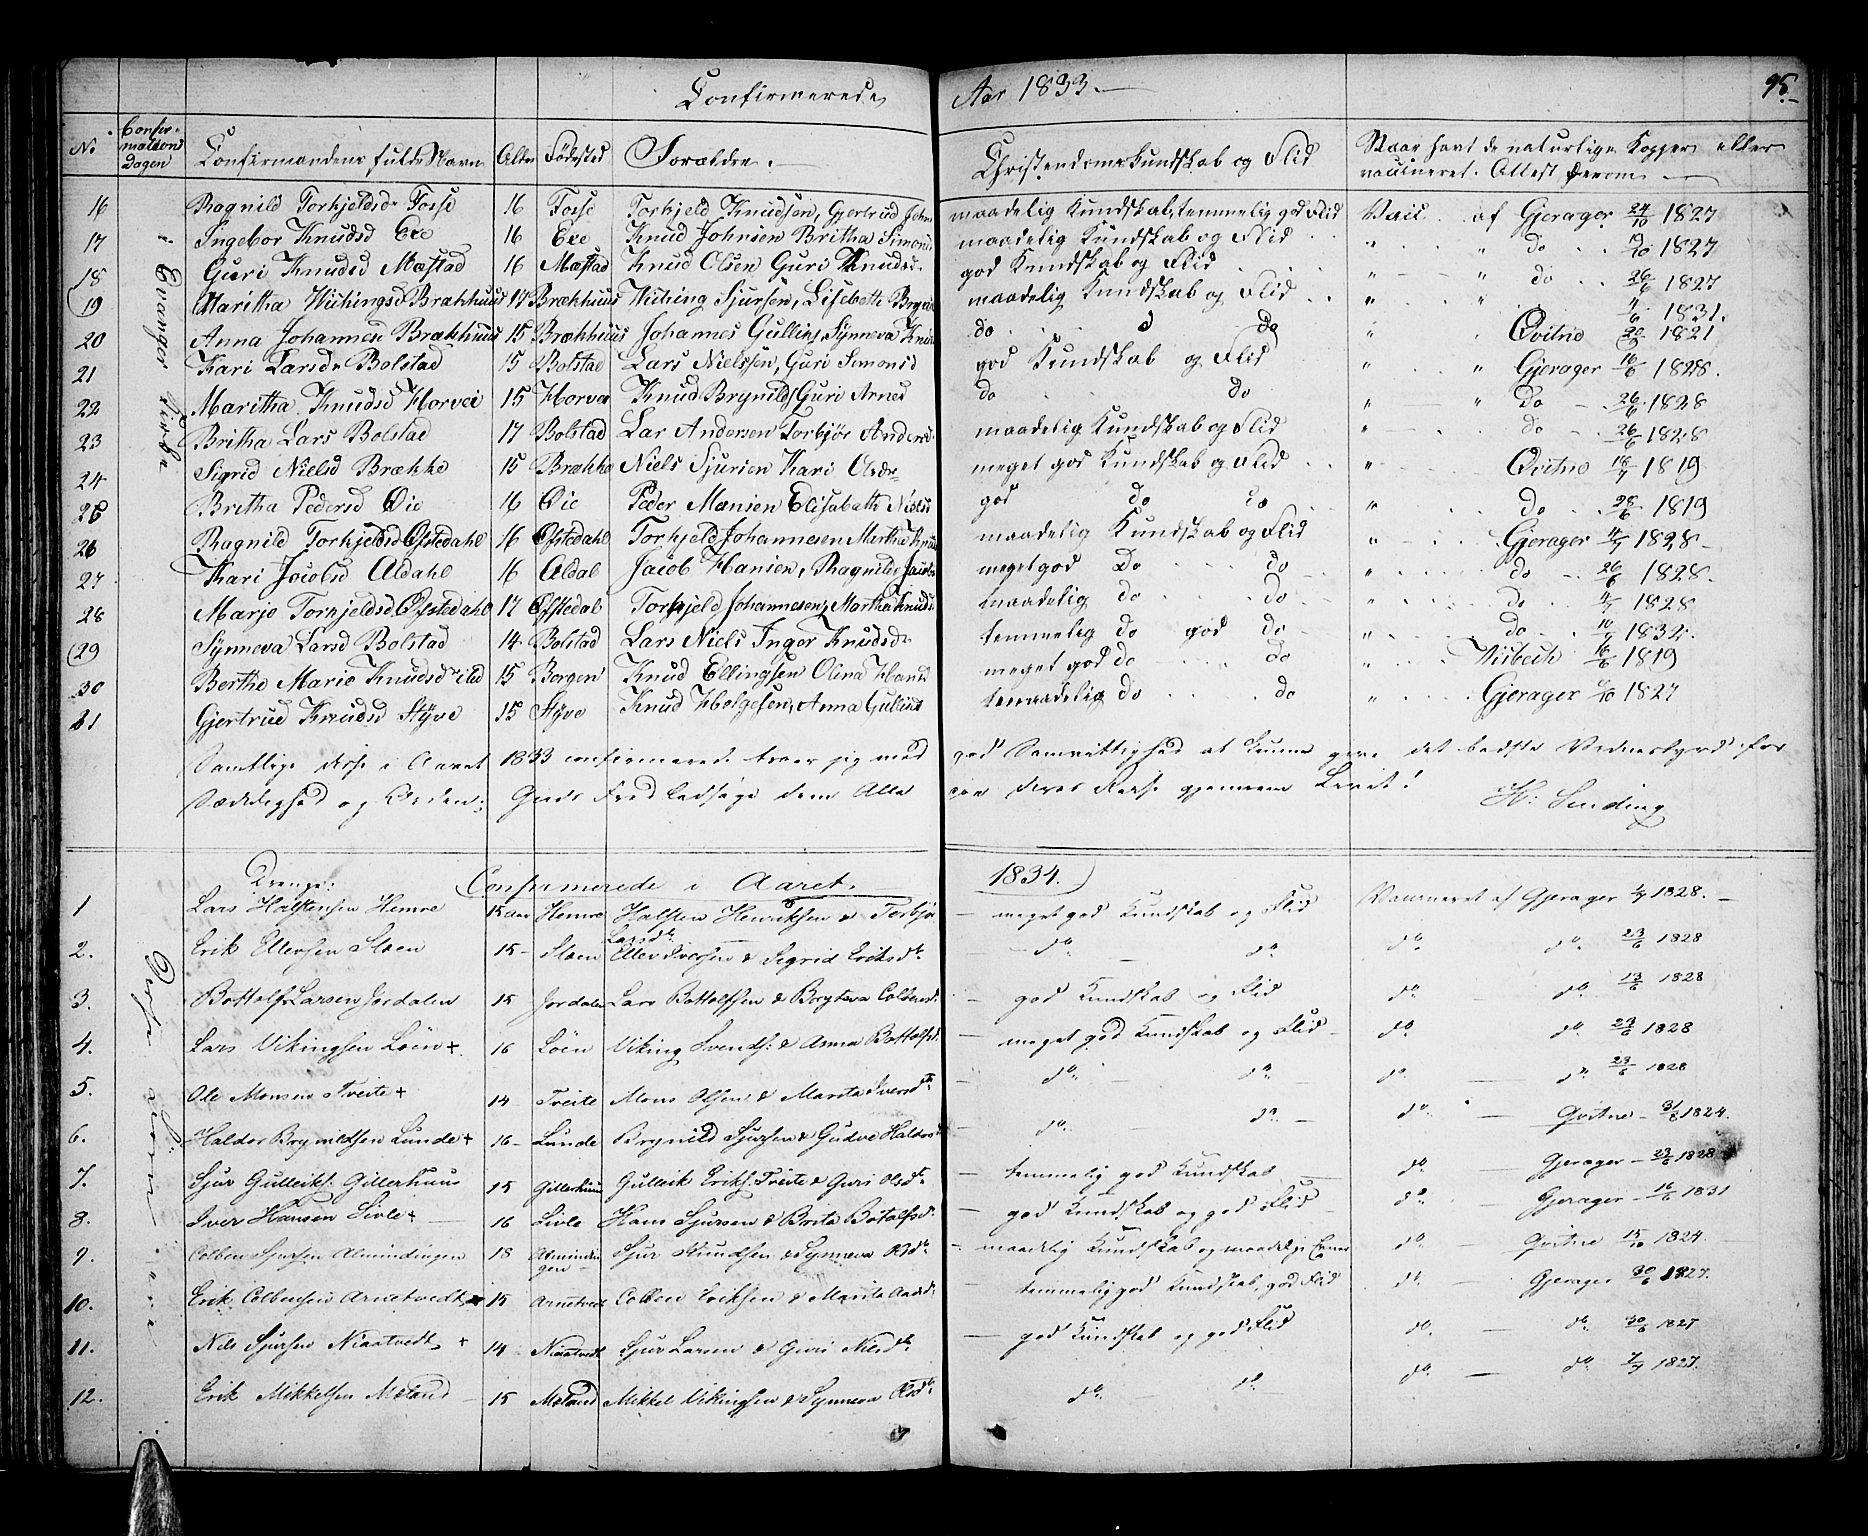 Confirmerede Aar 1833. 95.
No Confirmations Dagen Confirmandens fulde Navn Alder Fødested Forældre. Christendomskundskab og Flid Naar havt de naturlige Kopper eller vaccineret. Attest derom
Evanger Kirke
16 Ragnild Torkjeldsd. Fosse 16 Fosse Torkjeld Knudsen, Gjertrud Johns maadelig Kundskab, temmelig god Flid Vacc. af Gjerager 24/10 1827
17 Ingebor Knudsd Exe 16 Exe Knud Johnsen Britha Simons maadelig Kundskab og Flid " " do 1827
18 Guri Knudsd Mæstad 16 Mæstad Knud Olsen Guri Knudsd. god Kundskab og Flid " " do 26/6 1827
19 Maritha Wichingsd Brækhuus 14 Brækhuus Wiching Sjursen, Lisebeth maadelig Kundskab og Flid " " 1831.
20 Anna Johannesd Brækhuus 15 Brækhuus Johannes Gullius, Synneva do do " " Qvitno 1821
21 Kari Larsd. Bolstad 15 Bolstad Lars Nielssen, Guri Simonsd god Kundskab og Flid " " Gjerager 16/6 1828.
22 Maritha Knudsd Horvei 15 Horvei Knud Brynilds Guri Arnes do do " " do 26/6 1828
23 Britha Lars Bolstad 17 Bolstad Lar Andersen Torbjør Anders maadelig Kundskab og Flid " do 26/6 1828
24 Sigrid Nielsd Brække 15 Brække Niels Sjursen Kari meget god Kundskab og Flid " Qvitno 18/7 1819
25 Britha Pedersd Øie 16 Øie Peder Mænsen Elisabeth Niels god do do " do 28/6 1819
26 Ragnild Torkjeldsd Ofstedahl 16 Ofstedahl Torkjeld Johannesen Martha maadelig Kundskab og Flid " Gjerager 1828
27 Kari Jacobsd Aldahl 16 Aldal Jacob Hansen, Ragnild Jacobs meget god do do " do 26/6 1828.
28 Marjo Torkjeldsd Ofstedahl 17 Ofstedal Torkjeld Johannesen, Martha Knuds maadelig do do " do 1828
29 Synneva Larsd Bolstad 14 Bolstad Lars Niels Inger Knudsd. temmelig do god do " do 1832.
30 Berthe Marie Knudsd 15 Borgen Knud Ellingsen Olena Hansd meget god do do " Wisbech 16/6 1819
31 Gjertrud Knudsd Styve 15 Styve Knud Helgesen, Anna Gullius maadelig do do " Gjerager 1827
Samtlige disse i Aaret 1833 confirmerede troer jeg med god Samvittighed at kunne give det bedste Vidnesbyrd for
Sædelighed og Orden; Guds Fred ledsage dem Alle paa deres Reise gjennem Livet! H: Sinding
Drenge: Confirmerede i Aaret 1834.
1 Lars Halstensen Hemre 15 aar Hemre Halsten Henriksen & Torbjør Larsdr. meget god Kundskab og Flid Vaccineret af Gjerager 1828.
2. Erik Ellevsen Sloen 15 Sloen Ellev Iversen & Sigrid Eriksdr. do do do do 23/6 1828
3. Bottolf Larsen Jordalen 15 Jordalen Lars Bottolfsen & Bryteva Colbensd. god Kundskab og Flid do do 13/6 1828
4. Lars Vikingsen Løen + 16 Løen Viking Svends: & Anna Bottolfsd. meget god Kundskab og Flid do do 23/6 1828
5. Ole Monsen Tveite + 14 Tveite Mons Olsen & Marita Iversdr. do do do do 23/6 1828
6. Haldor Brynildsen Lunde + 16 Lunde Brynild Sjursen & Gudve Haldorsd do do do Qvitne 31/8 1824.
7. Sjur Gulleiks: Gillerhuus 15 Gillerhuus Gulleik Eriks: Tveite & Guri Olsdr. temmelig god Kundskab do Gjerager 23/6 1828
8. Iver Hansen Sivle + 16 Sivle Hans Sjursen & Brita Botolfsd. god Kundskab og god Flid do Gjerager 16/6 1831
9. Colben Sjursen Almindingen 18 Almindingen Sjur Knudsen & Synneva Olsdr. maadelig Kundskab og maadelige Evner do Qvitne 15/10 1824.
10. Erik Colbensen Arnetvedt 15 Arnetvedt Colben Eriksen & Marita temmelig god Kundskab, god Flid do Gjerager 30/6 1827.
11. Nils Sjursen Niaatvedt + 14 Niaatvedt Sjur Larsen & Guri Nilsdr. god Kundskab og god Flid do do 30/6 1827
12. Erik Mikkelsen Mæland 15 Mæland Mikkel Vikingsen & Synneva Olsdr. do do do do 7/7 1827.